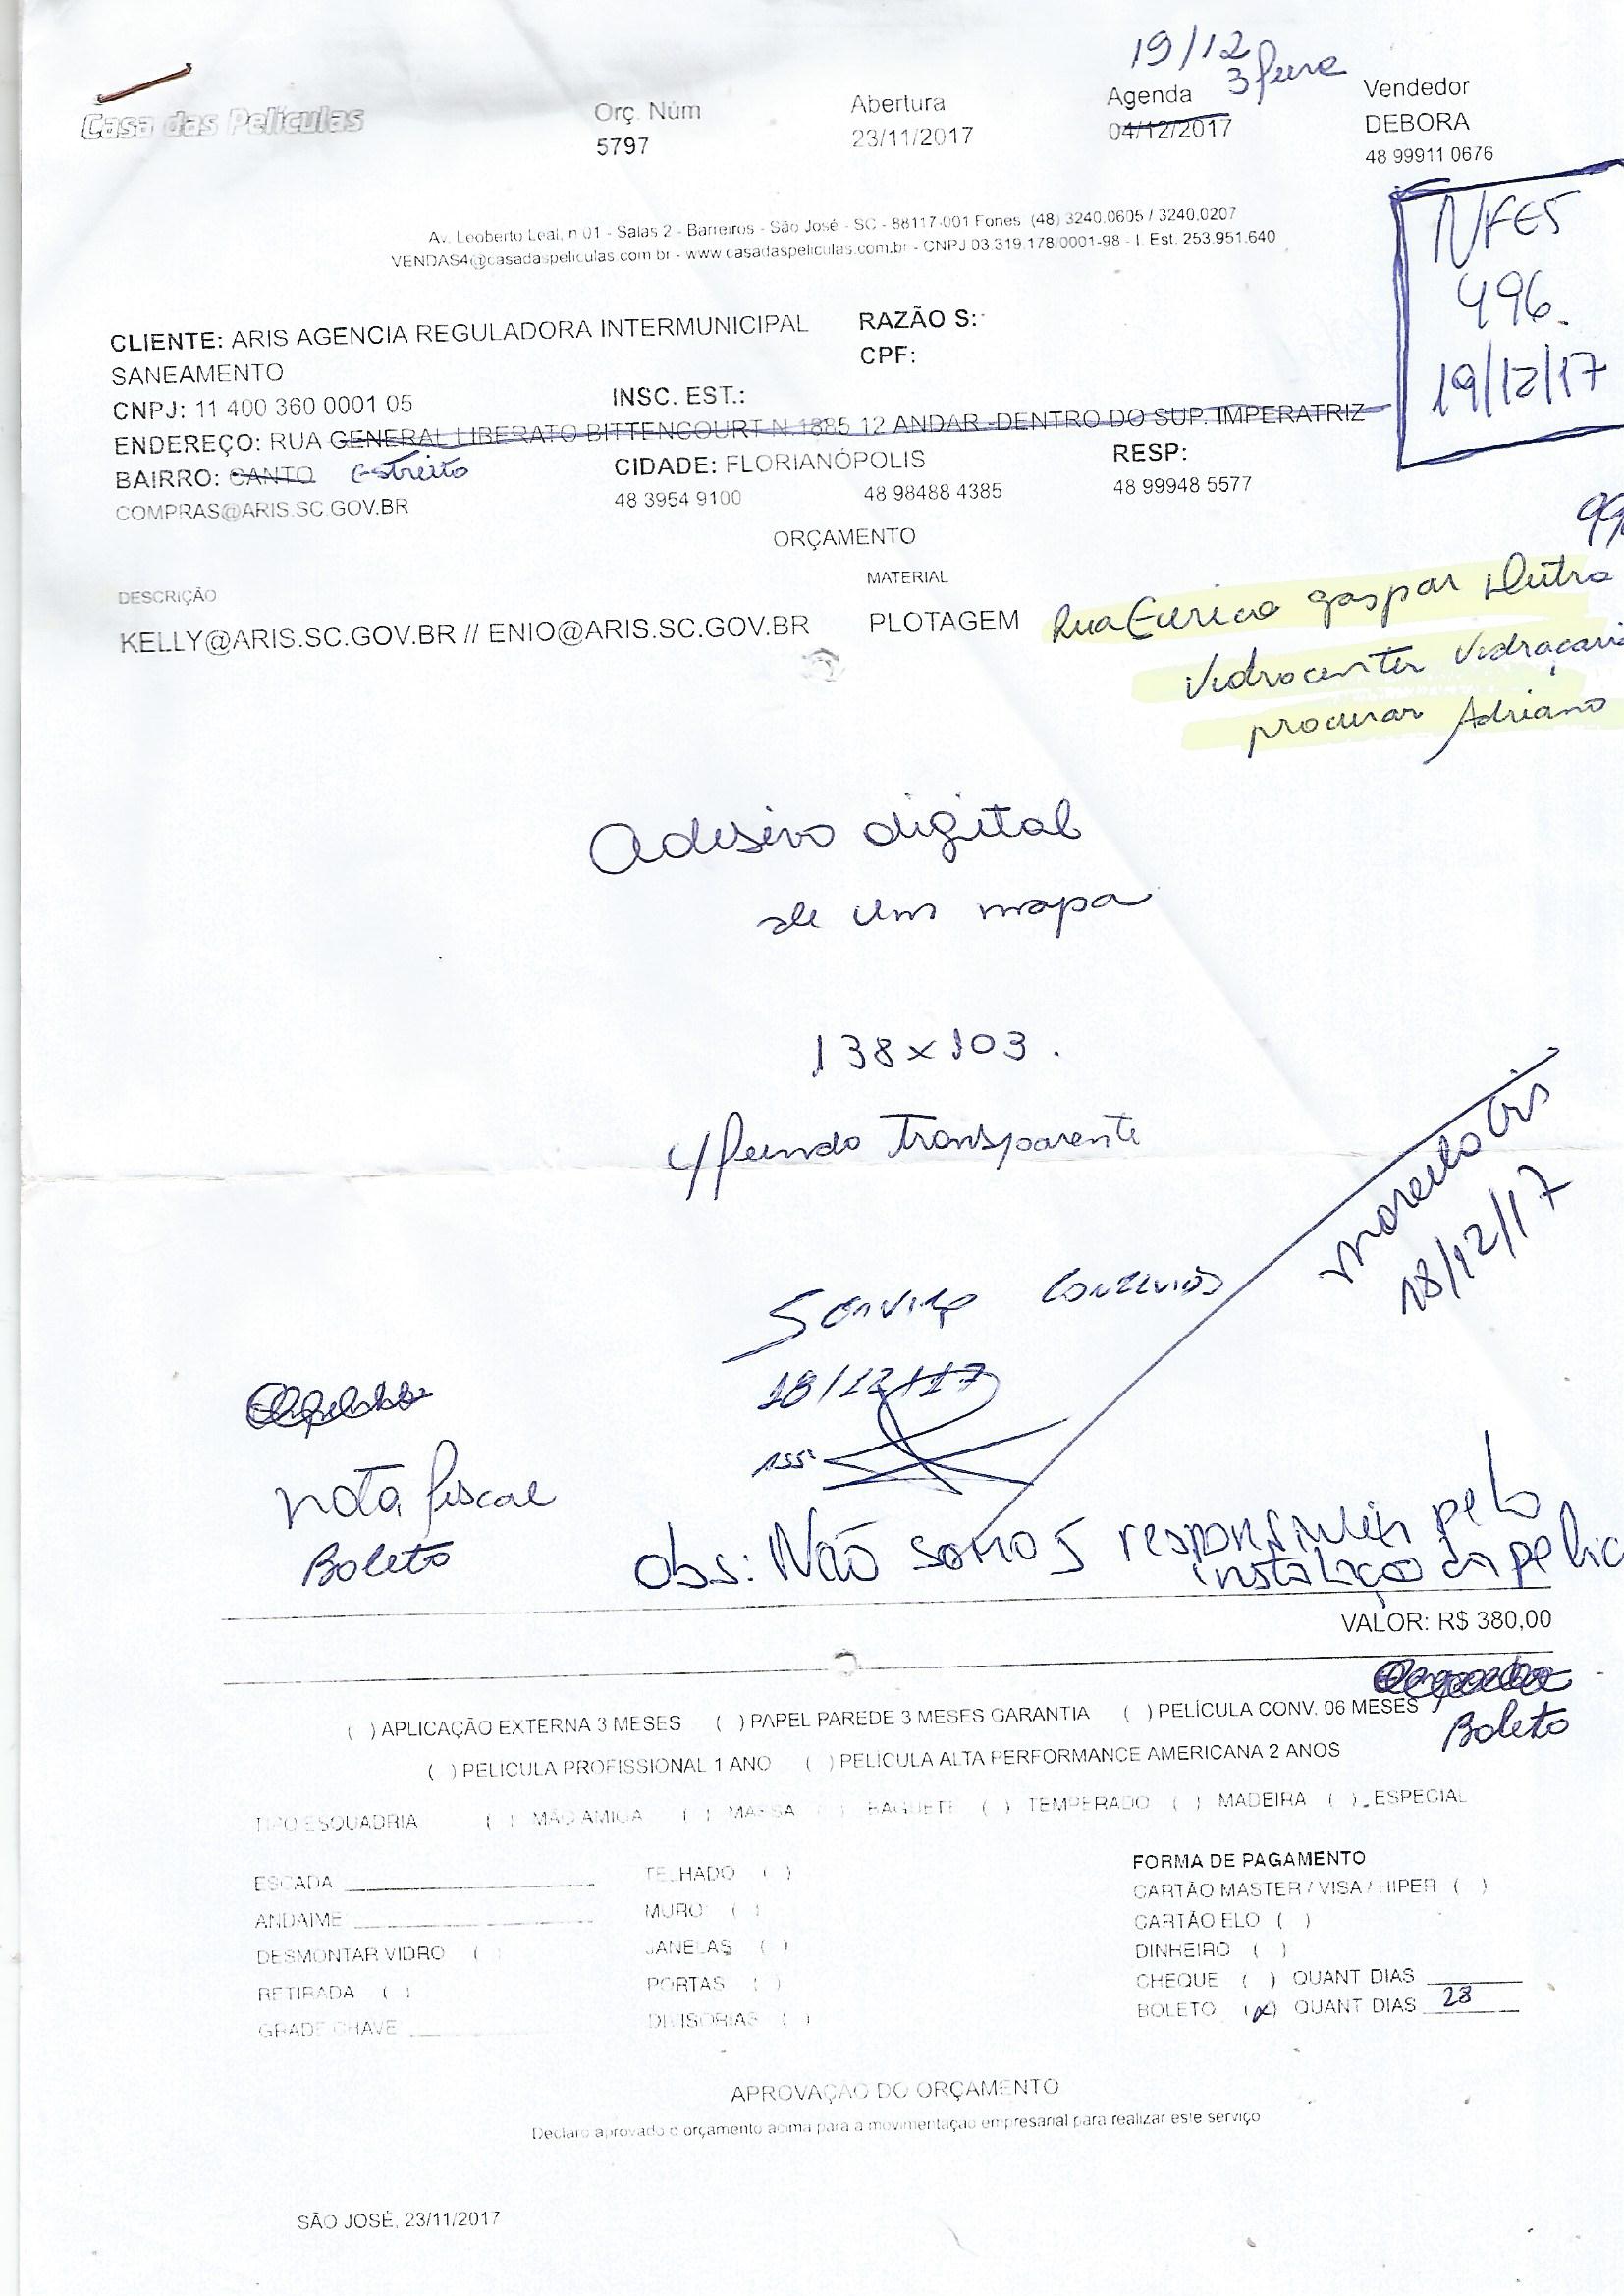 19/12
3 feira
Casa das Películas
Orç. Núm
5797
Abertura
23/11/2017
Agenda
04/12/2017
Vendedor
DEBORA
48 99911 0676
Av. Leoberto Leal, n 01 - Salas 2 - Barreiros - São José - SC - 88117-001 Fones (48) 3240.0605 / 3240.0207
VENDAS4@casadaspeliculas.com.br - www.casadaspeliculas.com.br - CNPJ 03.319.178/0001-98 - I. Est. 253.951.640
NFES
496
19/12/17
CLIENTE: ARIS AGENCIA REGULADORA INTERMUNICIPAL
SANEAMENTO
RAZÃO S:
CPF:
CNPJ: 11 400 360 0001 05
INSC. EST.:
ENDEREÇO: RUA GENERAL LIBERATO BITTENCOURT N 1885 12 ANDAR -DENTRO DO SUP. IMPERATRIZ
BAIRRO: CANTO Estreito
CIDADE: FLORIANÓPOLIS
RESP:
COMPRAS@ARIS.SC.GOV.BR
48 3954 9100
48 98488 4385
48 99948 5577
ORÇAMENTO
DESCRIÇÃO
MATERIAL
KELLY@ARIS.SC.GOV.BR // ENIO@ARIS.SC.GOV.BR
PLOTAGEM
Rua Eurico gaspar Dutra
Vidrocenter Vidraçaria
procurar Adriano
Adesivo digital
de um mapa
138x103.
c/ fundo Transparente
18/12/17
Serviço
18/12/17
ass:
nota fiscal
Boleto
Obs: Não somos responsáveis pelo
instalação da pelic
VALOR: R$ 380,00
Boleto
( ) APLICAÇÃO EXTERNA 3 MESES ( ) PAPEL PAREDE 3 MESES GARANTIA ( ) PELÍCULA CONV. 06 MESES
( ) PELICULA PROFISSIONAL 1 ANO ( ) PELÍCULA ALTA PERFORMANCE AMERICANA 2 ANOS
TIPO ESQUADRIA ( ) MÃO AMIGA ( ) MASSA ( ) BAGUETE ( ) TEMPERADO ( ) MADEIRA ( ) ESPECIAL
ESCADA
ANDAIME
DESMONTAR VIDRO ( )
RETIRADA ( )
GRADE CHAVE
TELHADO ( )
MURO ( )
JANELAS ( )
PORTAS ( )
DIVISORIAS ( )
FORMA DE PAGAMENTO
CARTÃO MASTER / VISA / HIPER ( )
CARTÃO ELO ( )
DINHEIRO ( )
CHEQUE ( ) QUANT DIAS
BOLETO (x) QUANT DIAS 28
APROVAÇAO DO ORÇAMENTO
Declaro aprovado o orçamento acima para a movimentação empresarial para realizar este serviço
SÃO JOSÉ, 23/11/2017